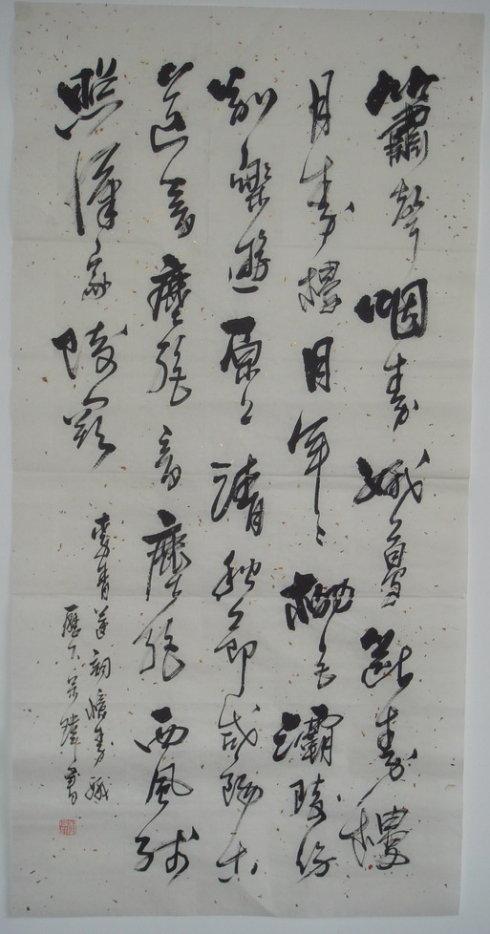 簫聲咽秦娥夢斷秦樓
月秦樓月年々柳色灞陵傷
別樂遊原上清秋節咸陽古
道音塵絕音塵絕西風殘
照漢家陵闕
李青蓮詞憶秦娥
書